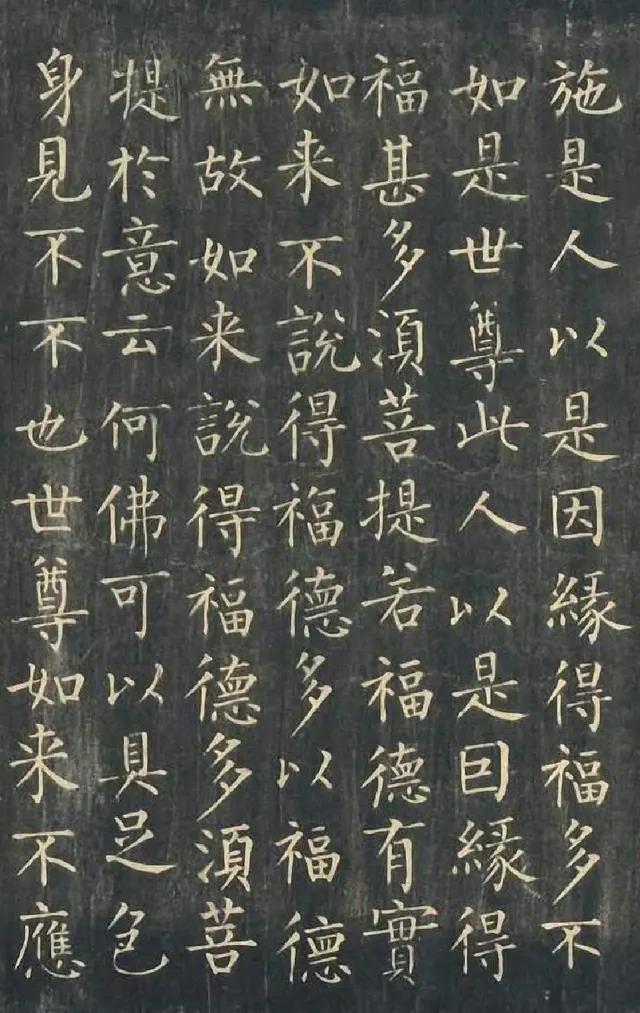 施是人以是因緣得福多不
如是世尊此人以是囙緣得
福甚多湏菩提若福德有實
如来不說得福德多以福德
無故如来說得福德多湏菩
提於意云何佛可以具足色
身見不不也世尊如来不應